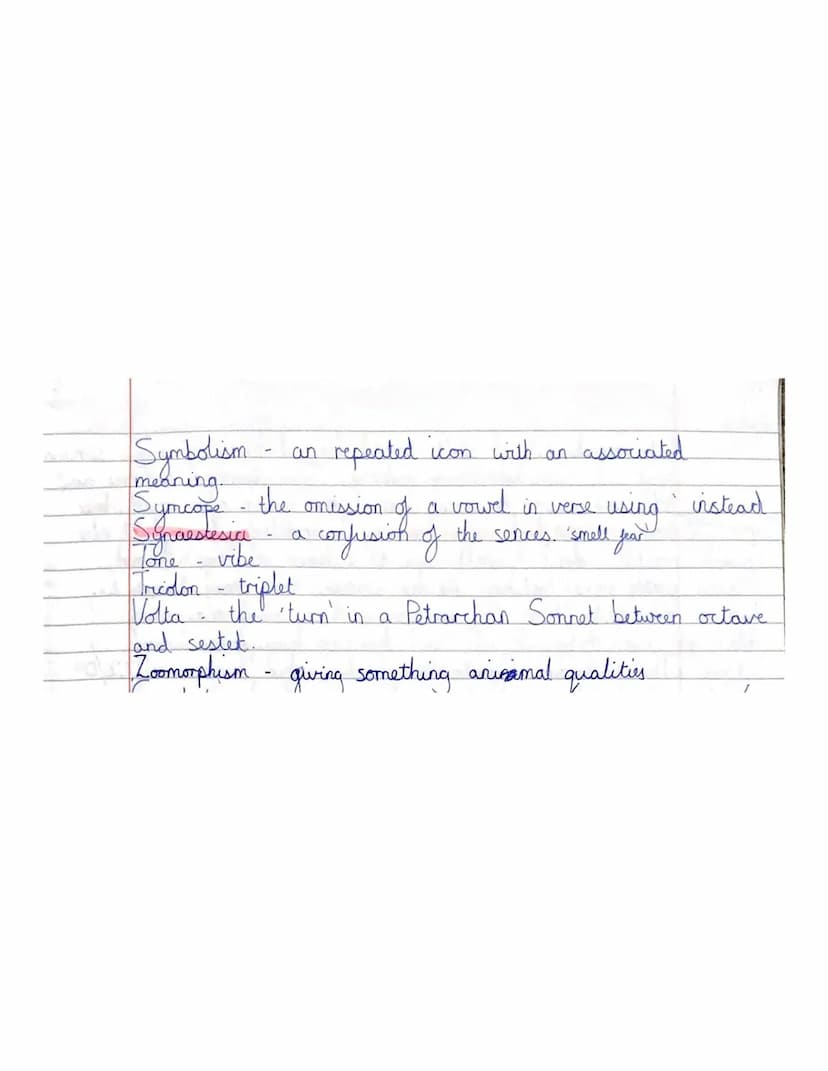 Symbolism - an repeated icon with an associated
meaning.
Syncope - the omission of a vowel in verse using ' instead
Synaestesia - a confusion of the sences. 'smell fear'
Tone - vibe
Tricolon - triplet
Volta - the 'turn' in a Petrarchan Sonnet between octave
and sestet.
Zoomorphism - giving something animal qualities